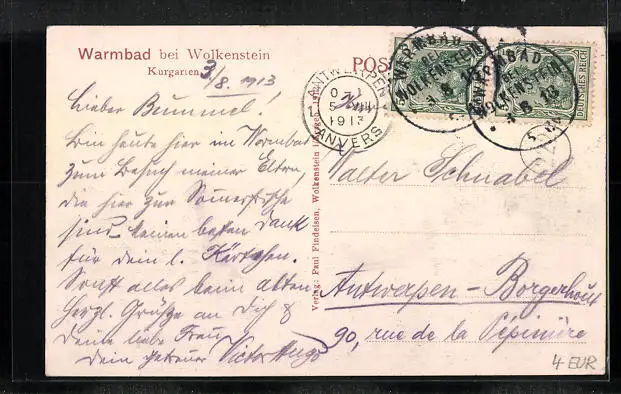 Warmbad bei Wolkenstein
Kurgarten
3/8. 1913
Lieber Bummel!
Bin heute hier im Warmbad
zum Besuch meiner Eltern,
die hier zur Sommerfrische
sind. Meinen besten Dank
für dein l. Kärtchen.
Sonst alles beim alten
Herzl. Grüße an Dich &
Deine liebe Frau
Dein getreuer Victor Hugo
Verlag: Paul Findeisen, Wolkenstein
POS
ANTWERPEN
1913
ANVERS
WARMBAD
BEI
WOLKENSTEIN
8. 13
WARMBAD
BEI
WOLKENSTEIN
8. 13
DEUTSCHES REICH
Walter Schnabel
Antwerpen-Borgerhout
90, rue de la Pépinière
4 EUR